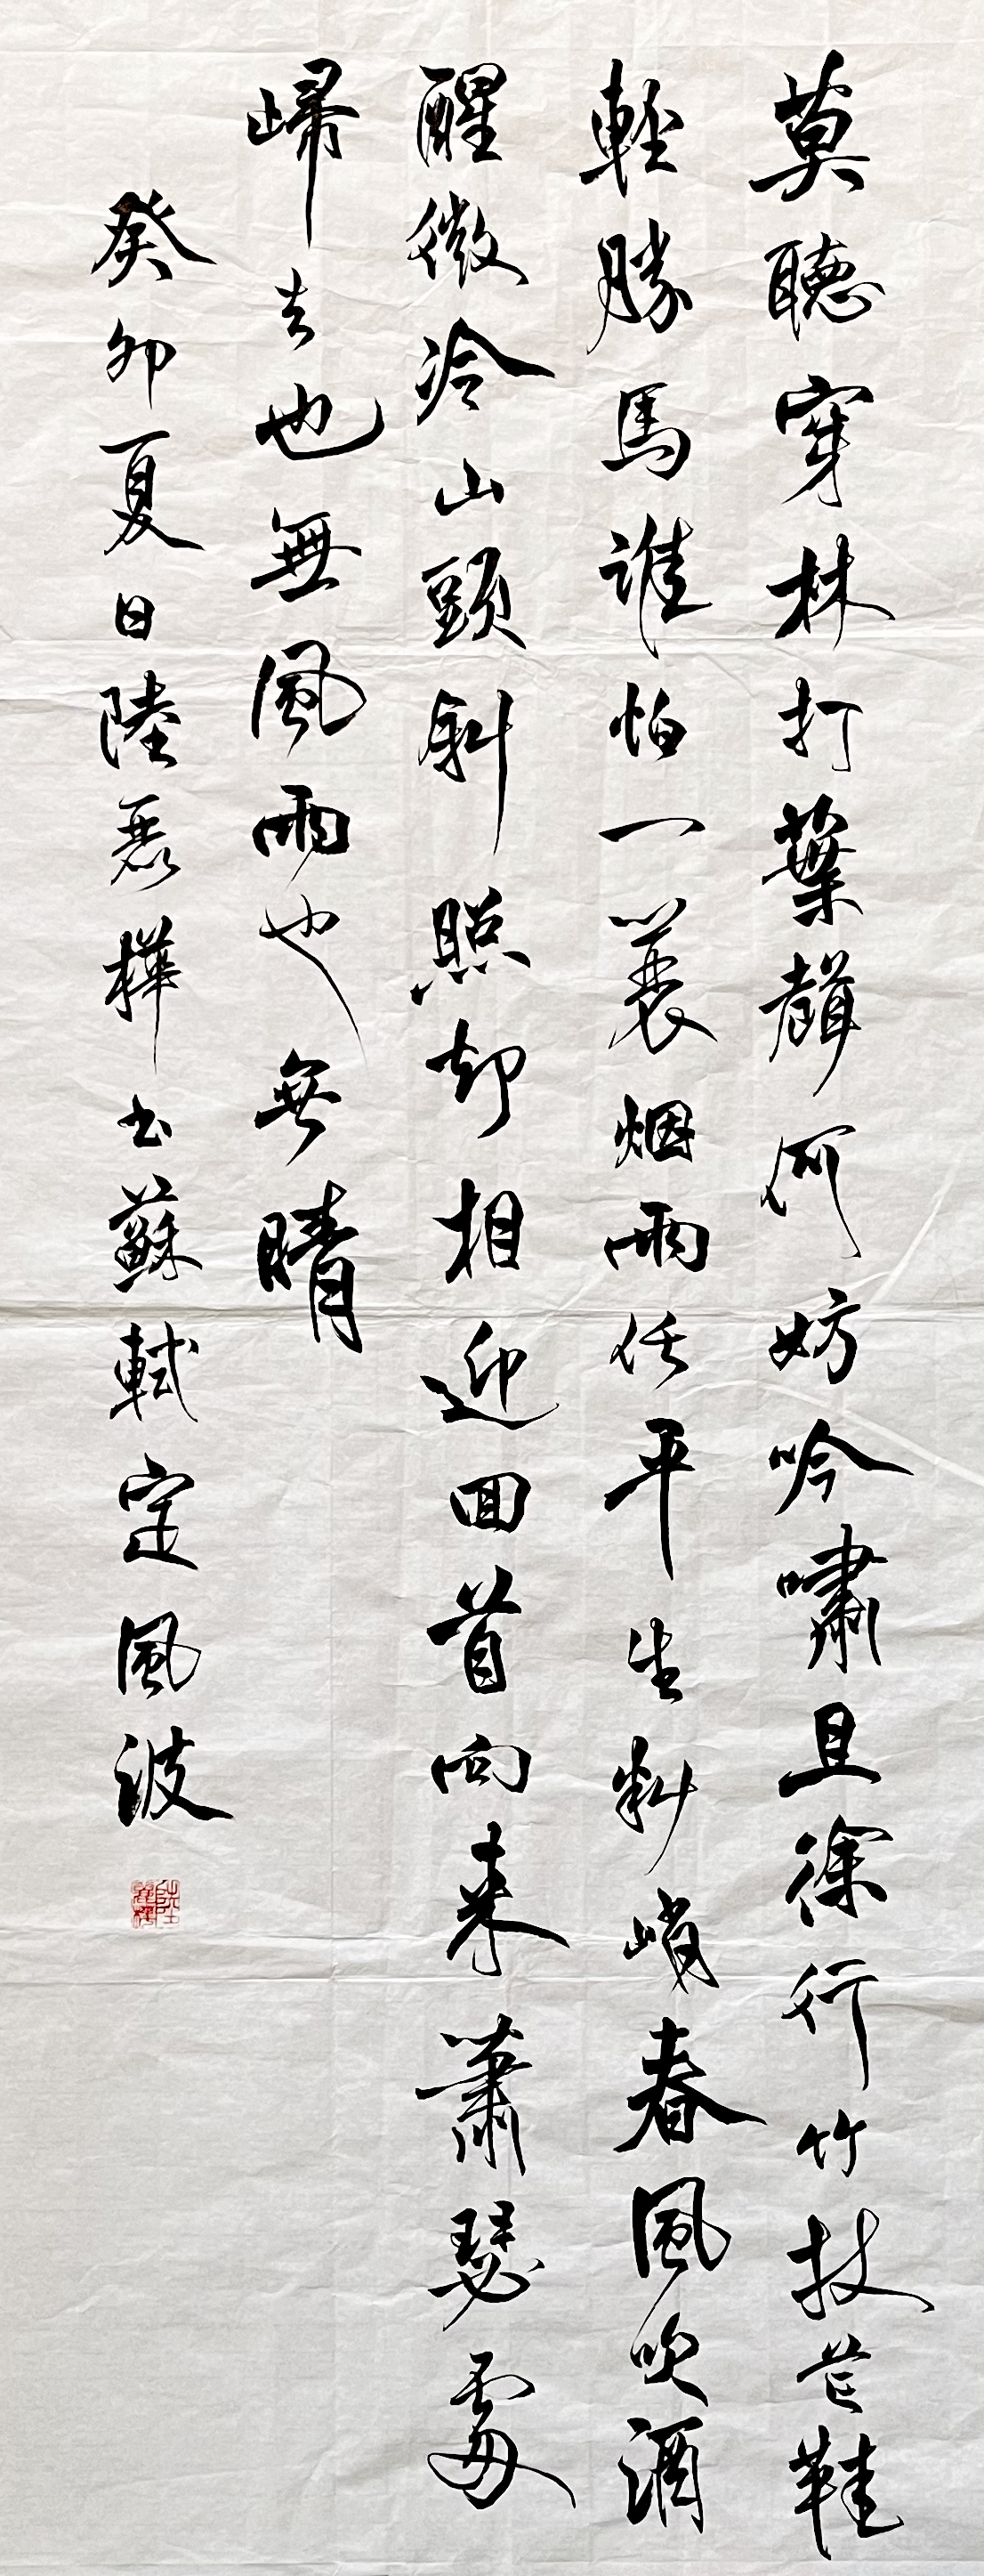 莫聽穿林打葉聲何妨吟嘯且徐行竹杖芒鞋
輕勝馬誰怕一蓑烟雨任平生料峭春風吹酒
醒微冷山頭斜照却相迎回首向来蕭瑟處
歸去也無風雨也無晴
癸卯夏日陸麗樺书蘇軾定風波